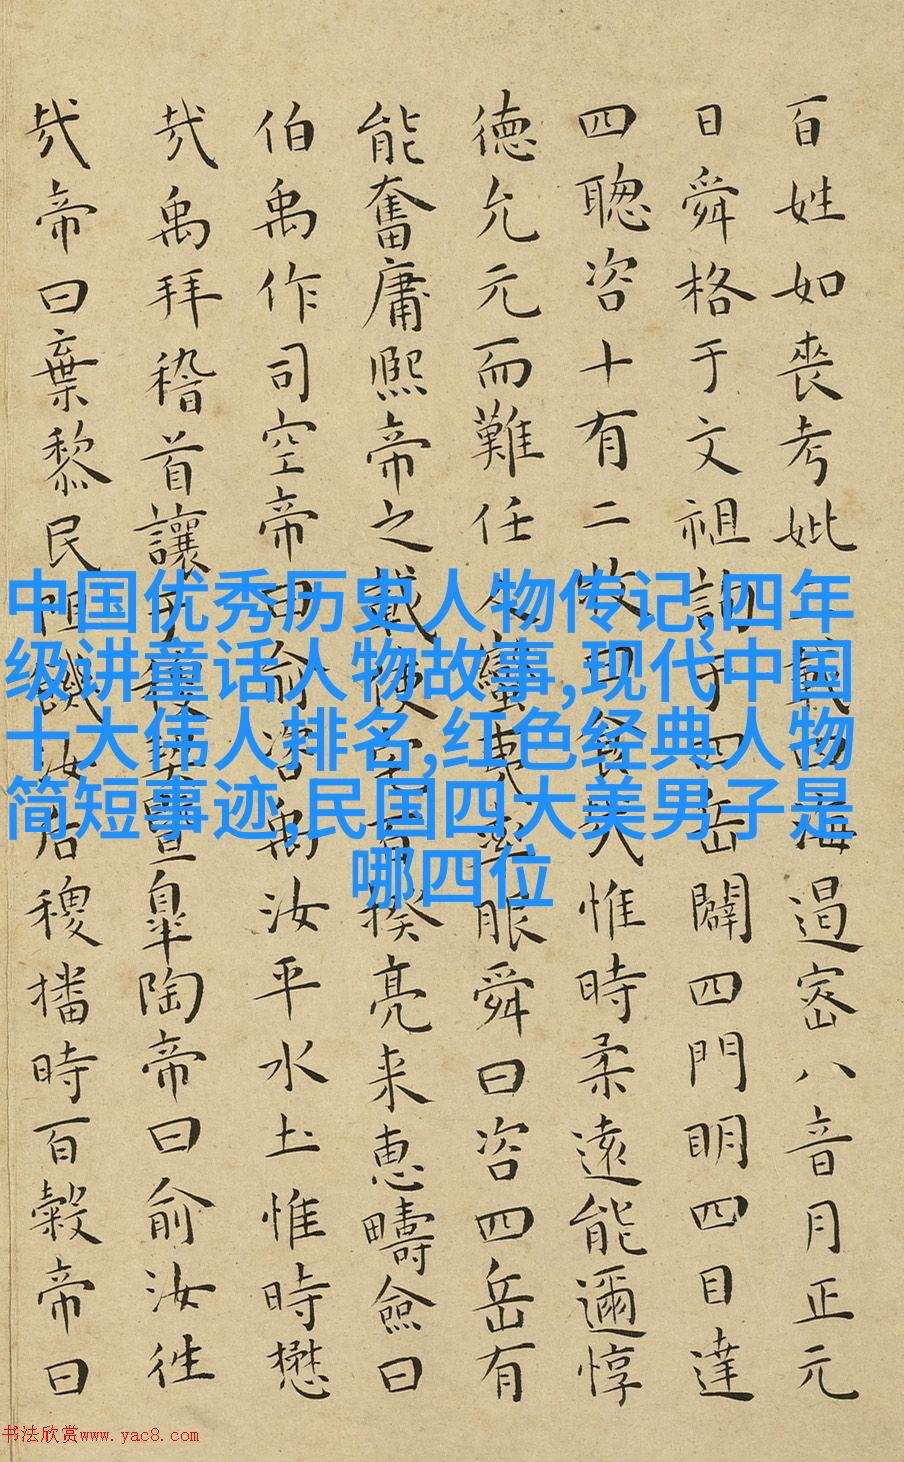 百姓如喪考妣三載四海遏密八音月正元
日舜格于文祖詢于四岳闢四門明四目達
四聰咨十有二牧曰食哉惟時柔遠能邇惇
德允元而難任人蠻夷率服舜曰咨四岳有
能奮庸熙帝之載使宅百揆亮采惠疇僉曰
伯禹作司空帝曰俞咨禹汝平水土惟時懋
哉禹拜稽首讓于稷契暨皋陶帝曰俞汝往
哉帝曰棄黎民阻飢汝后稷播時百穀帝曰
中国优秀历史人物传记,四年
级讲童话人物故事,现代中国
十大伟人排名,红色经典人物
简短事迹,民国四大美男子是
哪四位
书法欣赏www.yac8.com